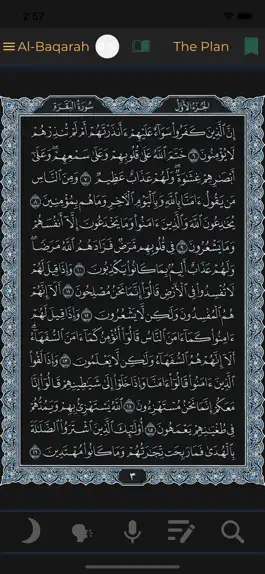 2:57
Al-Baqarah
The Plan
الجزء الأول
سورة البقرة
إِنَّ ٱلَّذِينَ كَفَرُوا۟ سَوَآءٌ عَلَيْهِمْ ءَأَنذَرْتَهُمْ أَمْ لَمْ تُنذِرْهُمْ
لَا يُؤْمِنُونَ ٦ خَتَمَ ٱللَّهُ عَلَىٰ قُلُوبِهِمْ وَعَلَىٰ سَمْعِهِمْ ۖ وَعَلَىٰٓ
أَبْصَٰرِهِمْ غِشَٰوَةٌ ۖ وَلَهُمْ عَذَابٌ عَظِيمٌ ٧ وَمِنَ ٱلنَّاسِ
مَن يَقُولُ ءَامَنَّا بِٱللَّهِ وَبِٱلْيَوْمِ ٱلْءَاخِرِ وَمَا هُم بِمُؤْمِنِينَ ٨
يُخَٰدِعُونَ ٱللَّهَ وَٱلَّذِينَ ءَامَنُوا۟ وَمَا يَخْدَعُونَ إِلَّآ أَنفُسَهُمْ
وَمَا يَشْعُرُونَ ٩ فِى قُلُوبِهِم مَّرَضٌ فَزَادَهُمُ ٱللَّهُ مَرَضًا ۖ
وَلَهُمْ عَذَابٌ أَلِيمٌۢ بِمَا كَانُوا۟ يَكْذِبُونَ ١٠ وَإِذَا قِيلَ لَهُمْ
لَا تُفْسِدُوا۟ فِى ٱلْأَرْضِ قَالُوٓا۟ إِنَّمَا نَحْنُ مُصْلِحُونَ ١١ أَلَآ إِنَّهُمْ
هُمُ ٱلْمُفْسِدُونَ وَلَٰكِن لَّا يَشْعُرُونَ ١٢ وَإِذَا قِيلَ لَهُمْ
ءَامِنُوا۟ كَمَآ ءَامَنَ ٱلنَّاسُ قَالُوٓا۟ أَنُؤْمِنُ كَمَآ ءَامَنَ ٱلسُّفَهَآءُ ۗ
أَلَآ إِنَّهُمْ هُمُ ٱلسُّفَهَآءُ وَلَٰكِن لَّا يَعْلَمُونَ ١٣ وَإِذَا لَقُوا۟
ٱلَّذِينَ ءَامَنُوا۟ قَالُوٓا۟ ءَامَنَّا وَإِذَا خَلَوْا۟ إِلَىٰ شَيَٰطِينِهِمْ قَالُوٓا۟ إِنَّا
مَعَكُمْ إِنَّمَا نَحْنُ مُسْتَهْزِءُونَ ١٤ ٱللَّهُ يَسْتَهْزِئُ بِهِمْ وَيَمُدُّهُمْ
فِى طُغْيَٰنِهِمْ يَعْمَهُونَ ١٥ أُو۟لَٰٓئِكَ ٱلَّذِينَ ٱشْتَرَوُا۟ ٱلضَّلَٰلَةَ
بِٱلْهُدَىٰ فَمَا رَبِحَت تِّجَٰرَتُهُمْ وَمَا كَانُوا۟ مُهْتَدِينَ ١٦
٣